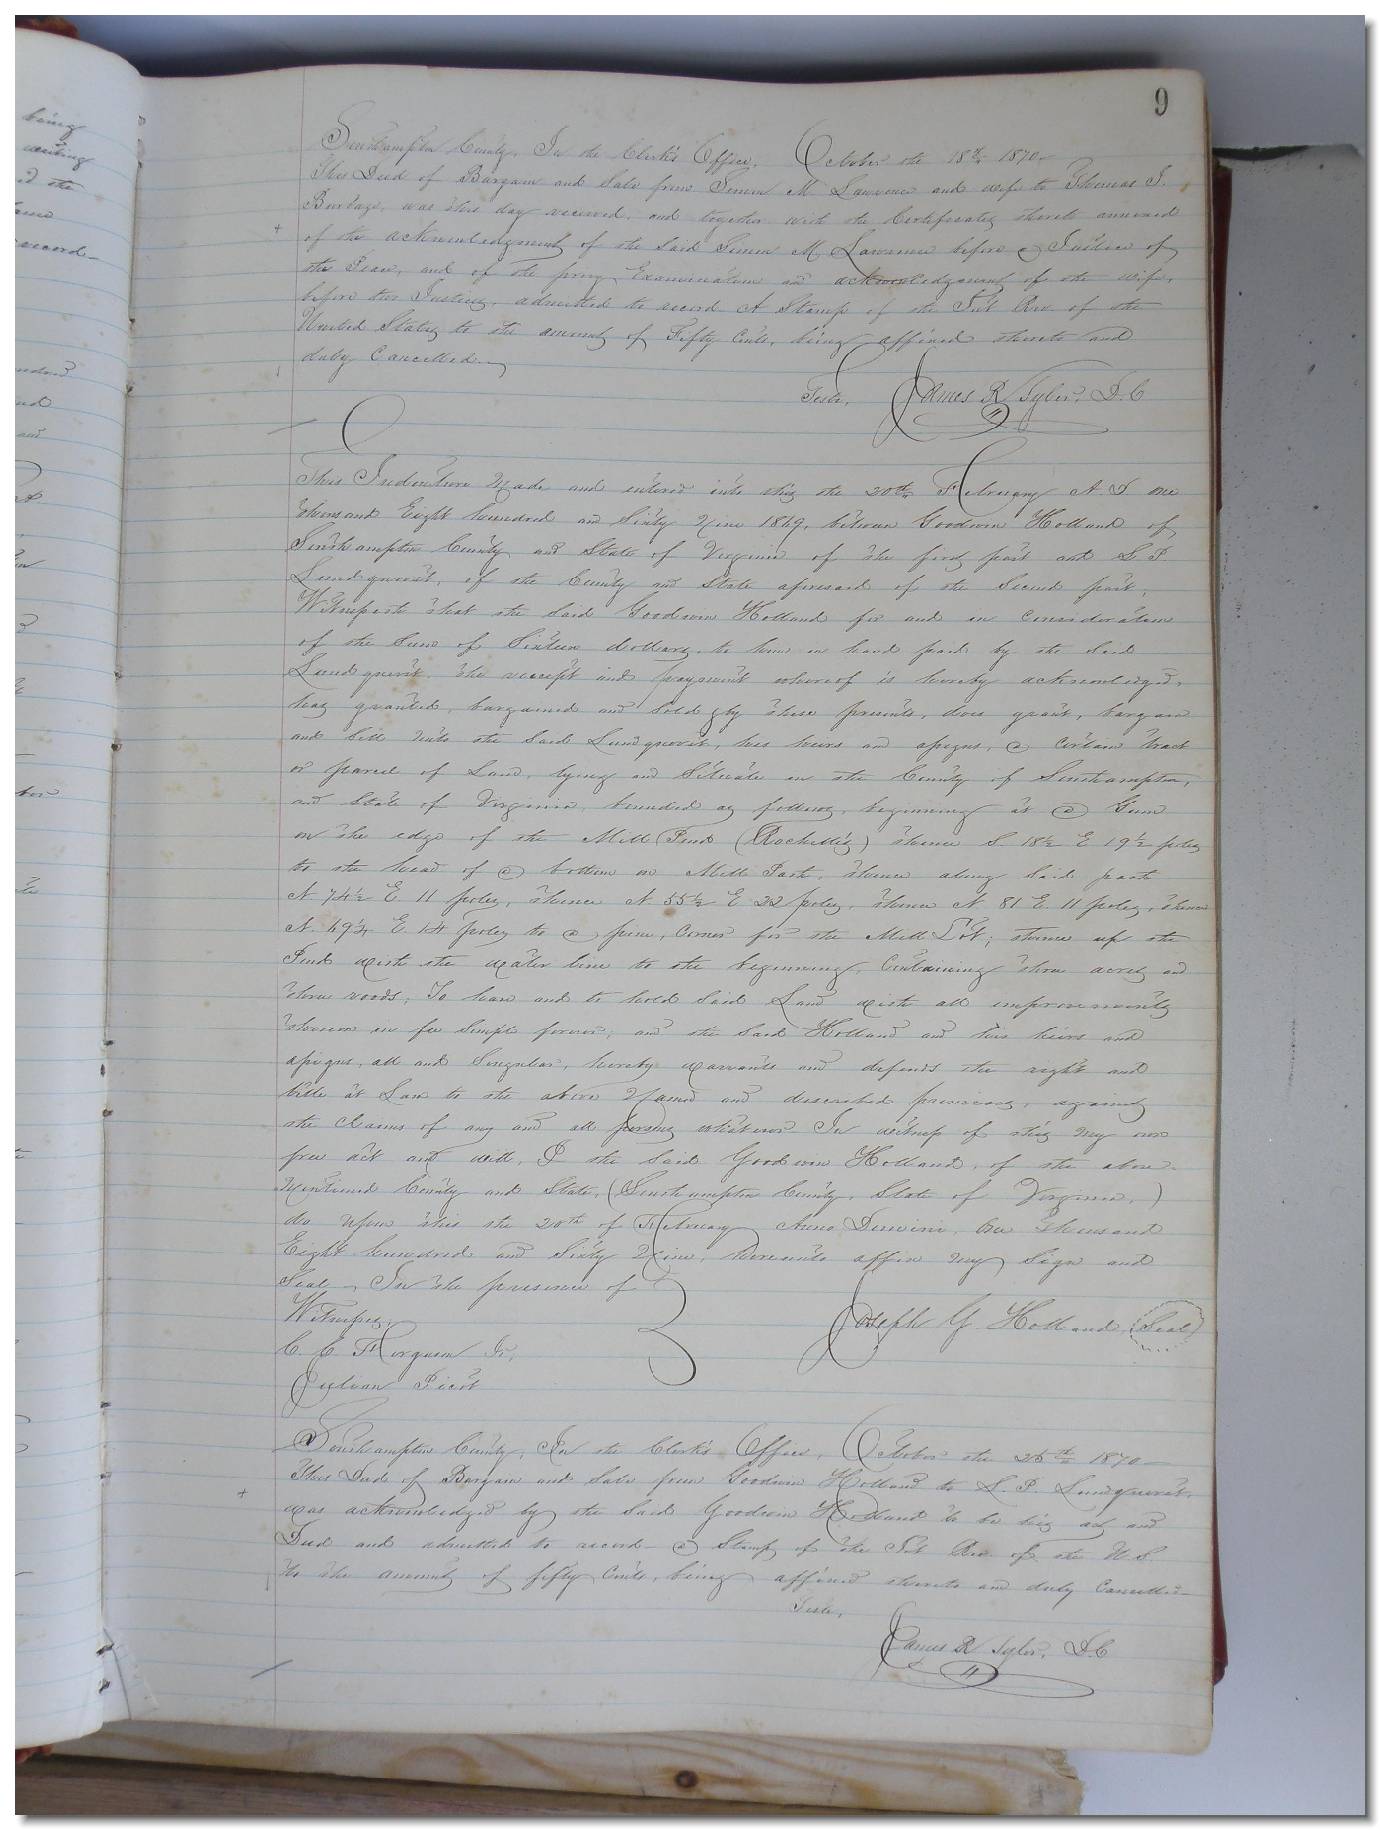 9
Southampton County, In the Clerk's Office, October the 18th 1870—
This Deed of Bargain and Sale from Simon M Lawrence and wife to Thomas J.
Burbage, was this day received, and together with the Certificates thereto annexed
of the acknowledgment of the said Simon M Lawrence before a Justice of
the Peace, and of the privy Examination and acknowledgment of the wife,
before two Justices, admitted to record. A Stamp of the Int Rev. of the
United States to the amount of Fifty Cents, being affixed thereto and
duly Cancelled.
Teste, James R Tyler, D.C
This Indenture Made and entered into this the 20th February A.D one
thousand Eight hundred and Sixty Nine 1869, between Goodwin Holland of
Southampton County and State of Virginia of the first part and S. P.
Lundquvist, of the County and State aforesaid of the Second part,
Witnesseth that the said Goodwin Holland for and in consideration
of the Sum of Sixteen dollars, to him in hand paid by the said
Lundquvist, the receipt and payment whereof is hereby acknowledged,
has granted, bargained and sold, & by these presents, does grant, bargain
and sell unto the said Lundquvist, his heirs and assigns, a certain tract
or parcel of Land, lying and Situate in the County of Southampton,
and State of Virginia, bounded as follows, beginning at a Gum
on the edge of the Mill Pond (Rochelle's) thence S 18½ E 19½ poles
to the head of a bottom on Mill Path, thence along said path
N 74½ E 11 poles, thence N 55½ E 22 poles, thence N. 81 E. 11 poles, thence
N. 69¾ E. 14 poles to a pine, Corner for the Mill Lot; thence up the
Pond with the water line to the beginning, Containing three acres and
three roods, To have and to hold said Land with all improvements
thereon in fee simple forever; and the said Holland and his heirs and
assigns, all and Singular, hereby warrants and defends the right and
title at Law to the above Named and described premises, against
the claims of any and all persons whatever. In witness of this my own
free act and will, I the said Goodwin Holland, of the above
Mentioned County and State, (Southampton County, State of Virginia,)
do Upon this the 20th of February Anno Domini, One Thousand
Eight hundred and Sixty Nine, hereunto affix my Sign and
Seal, In the presence of
Witnesses, Joseph G. Holland (Seal)
C. C. Ferguson Jr.
Julian Picot
Southampton County, In the Clerk's Office, October the 25th 1870—
This Deed of Bargain and Sale from Goodwin Holland to S. P. Lundquvist,
was acknowledged by the said Goodwin Holland to be his act and
Deed and admitted to record— a Stamp of the Int Rev. of the U.S.
to the amount of fifty Cents, being affixed thereto and duly Cancelled—
Teste,
James R Tyler, D.C